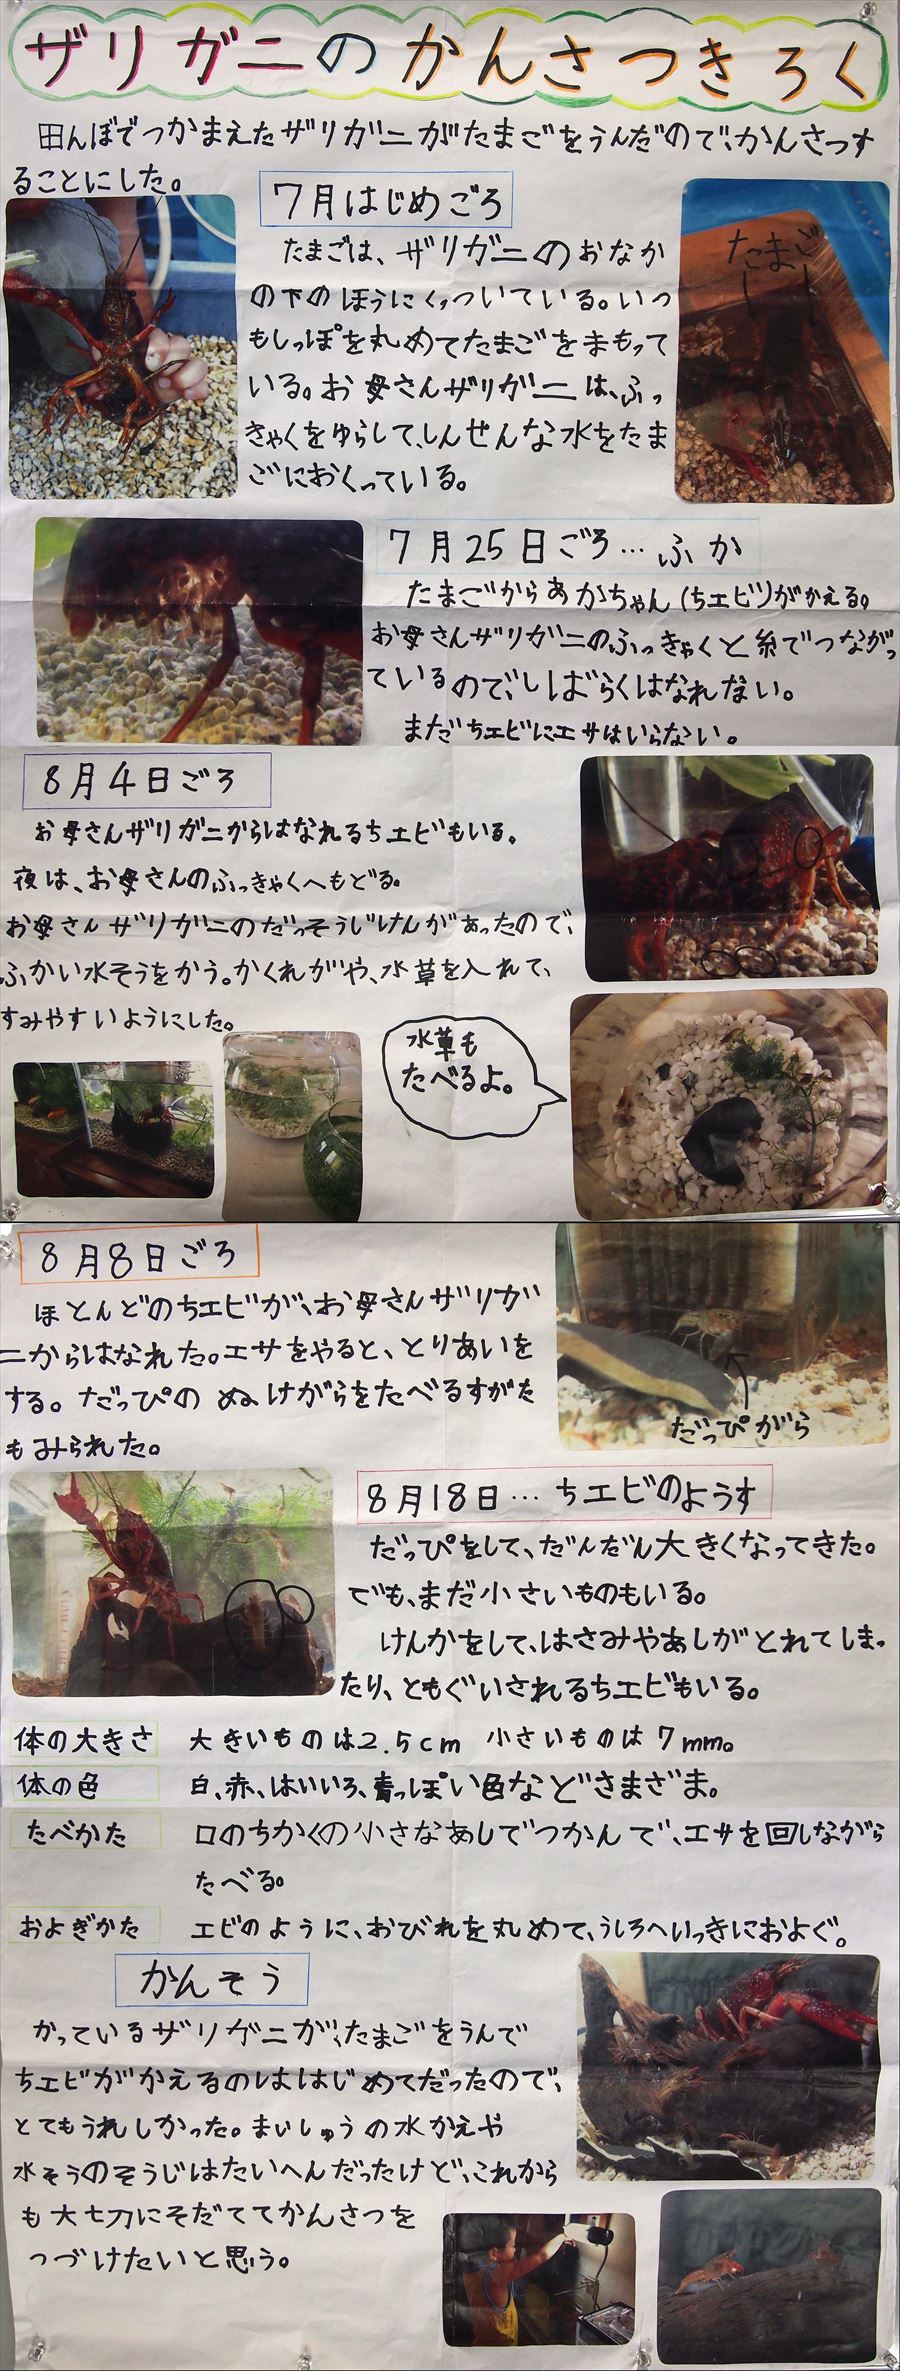 ザリガニのかんさつきろく
田んぼでつかまえたザリガニがたまごをうんだので、かんさつす
ることにした。
7月はじめごろ
たまごは、ザリガニのおなか
の下のほうにくっついている。いつ
もしっぽを丸めてたまごをまもって
いる。お母さんザリガニは、ふっ
きゃくをゆらして、しんせんな水をたま
ごにおくっている。
たまご
7月25日ごろ…ふか
たまごからあかちゃん(ちエビ)がかえる。
お母さんザリガニのふっきゃくと糸でつながっ
ているので、しばらくはなれない。
まだちエビにエサはいらない。
8月4日ごろ
お母さんザリガニからはなれるちエビもいる。
夜は、お母さんのふっきゃくへもどる。
お母さんザリガニのだっそうじけんがあったので、
ふかい水そうをかう。かくれがや、水草を入れて、
すみやすいようにした。
水草も
たべるよ。
8月8日ごろ
ほとんどのちエビが、お母さんザリガ
ニからはなれた。エサをやると、とりあいを
する。だっぴのぬけがらをたべるすがた
もみられた。
だっぴがら
8月18日…ちエビのようす
だっぴをして、だんだん大きくなってきた。
でも、まだ小さいものもいる。
けんかをして、はさみやあしがとれてしまっ
たり、ともぐいされるちエビもいる。
体の大きさ 大きいものは2.5cm 小さいものは7mm。
体の色 白、赤、はいいろ、青っぽい色などさまざま。
たべかた 口のちかくの小さなあしでつかんで、エサを回しながら
たべる。
およぎかた エビのように、おびれを丸めて、うしろへいっきにおよぐ。
かんそう
かっているザリゲニが、たまごをうんで
ちエビがかえるのははじめてだったので、
とてもうれしかった。まいしゅうの水かえや
水そうのそうじはたいへんだったけど、これから
も大切にそだててかんさつを
つづけたいと思う。